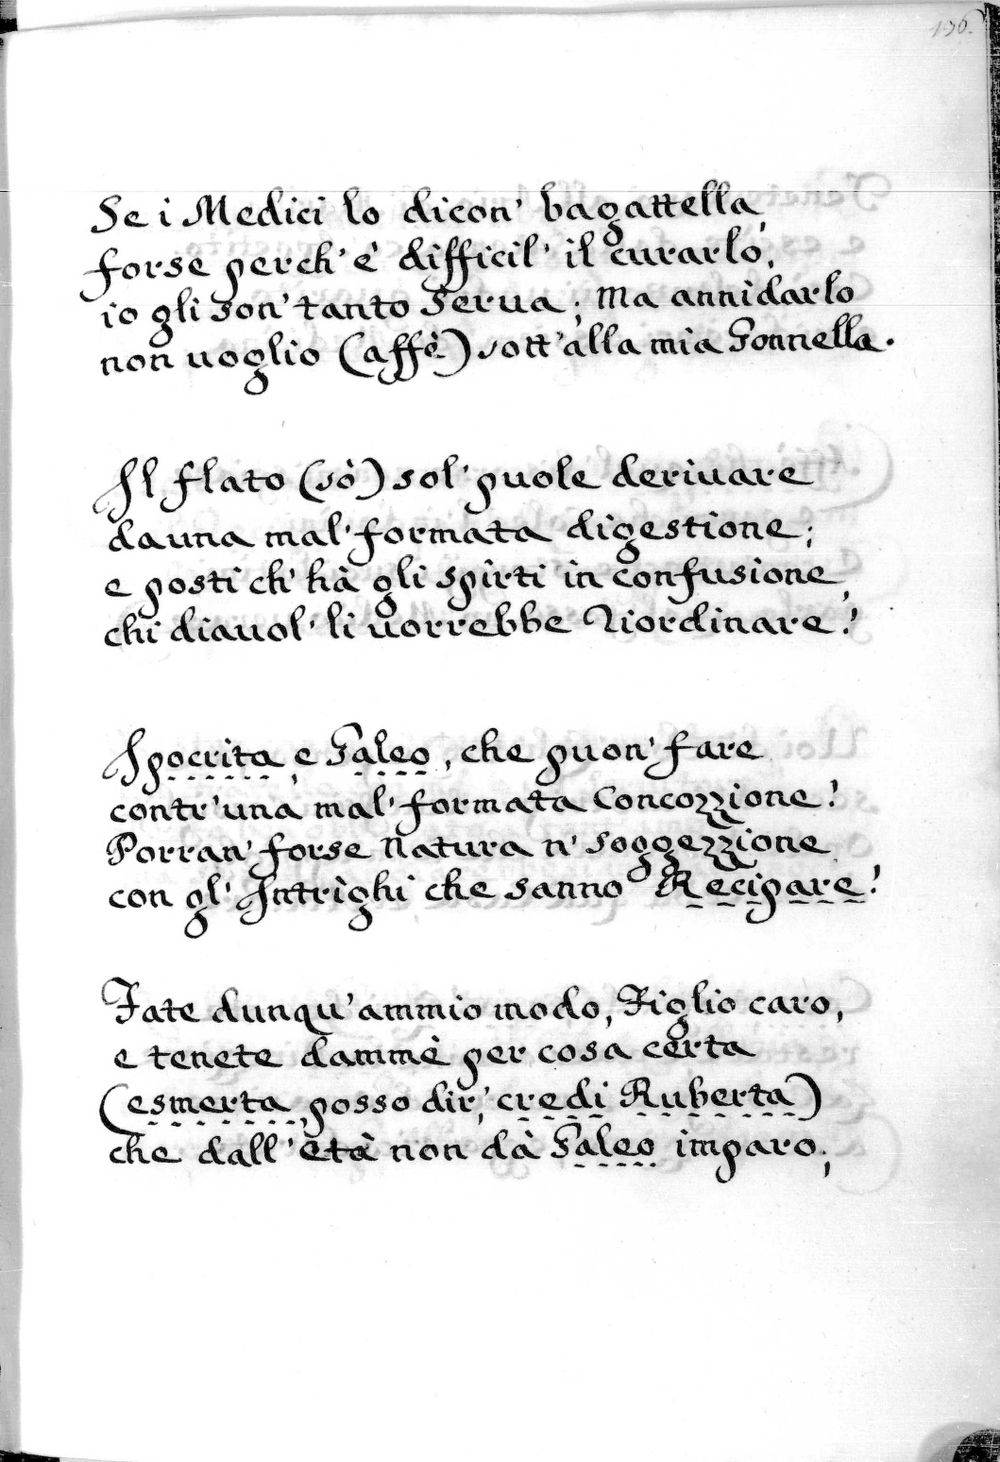 136.
Se i Medici lo dicon' bagattella,
forse perch'è difficil' il curarlo,
io gli son' tanto Serua; ma annidarlo
non uoglio (affè) sott'alla mia Gonnella.
Il flato (sò) sol' puole deriuare
da una mal' formata digestione;
e posti ch' hà gli spirti in confusione,
chi diauol' li uorrebbe Riordinare?
Ipocrita, e Galeo, che puon' fare
contr'una mal' formata Concozzione?
Porran' forse Natura n' soggezzione
con gl' Intrighi che sanno Recipare?
Fate dunqu'ammio modo, Figlio caro,
e tenete dammè per cosa certa
(esmerta, posso dir, credi Ruberta)
che dall'età non dà Galeo imparo;